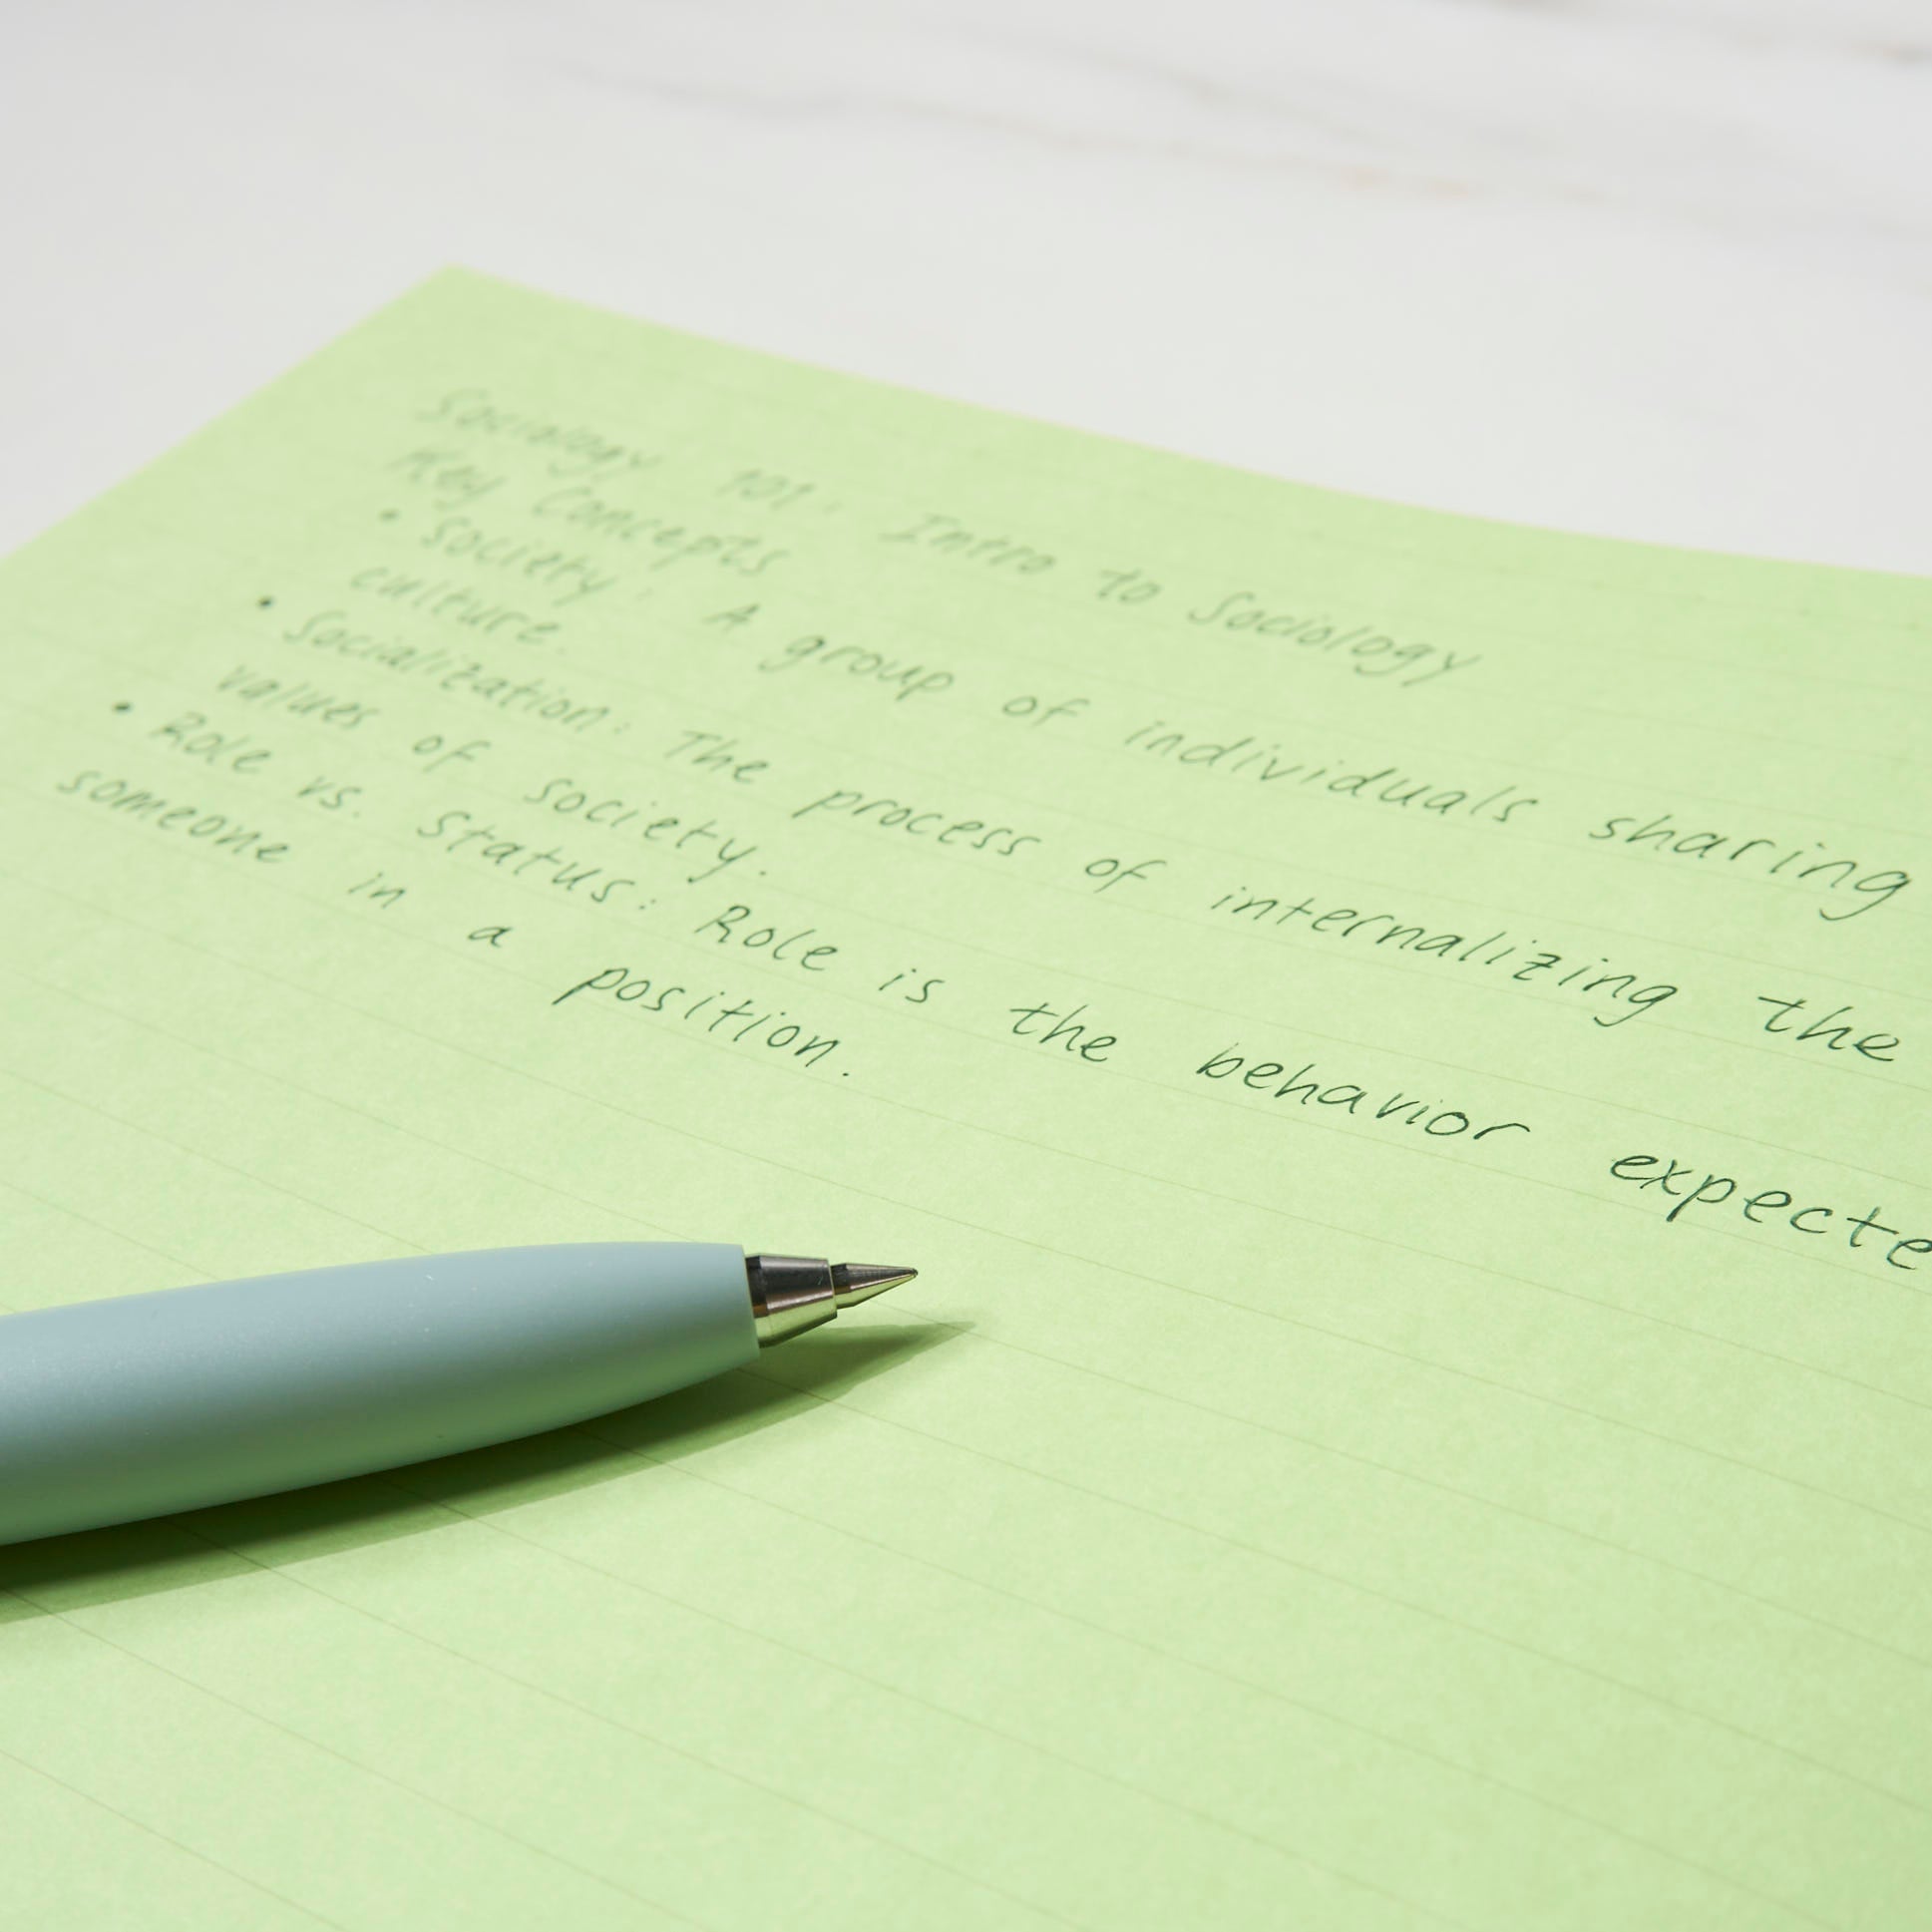 Sociology 101: Intro to Sociology
Key Concepts
• Society: A group of individuals sharing
culture.
• Socialization: The process of internalizing the
values of society.
• Role vs. Status: Role is the behavior expecte
someone in a position.